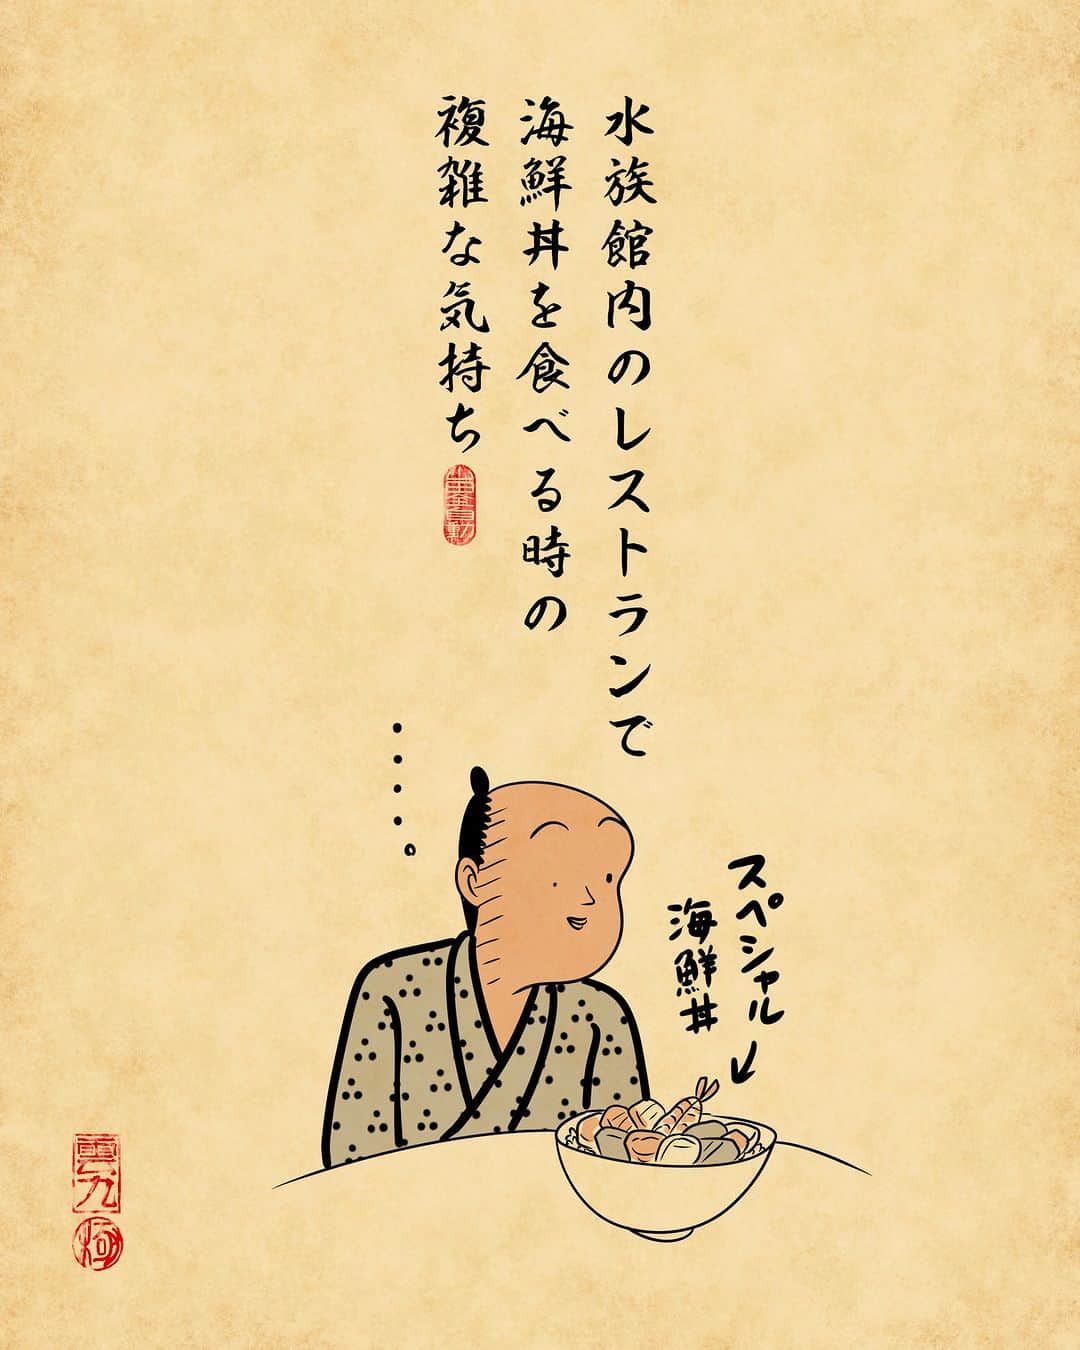 水族館内のレストランで
海鮮丼を食べる時の
複雑な気持ち
・・・・。
スペシャル
海鮮丼